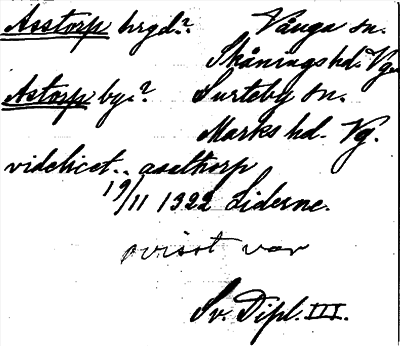 Asstorp hrgd.? Vånga sn.
Skånings hd. Vg.
Astorp by.? Surteby sn.
Marks hd. Vg.
videlicet.. asaltorp
19/11 1322 Liderne.
ovisst var
Sv. Dipl. III.